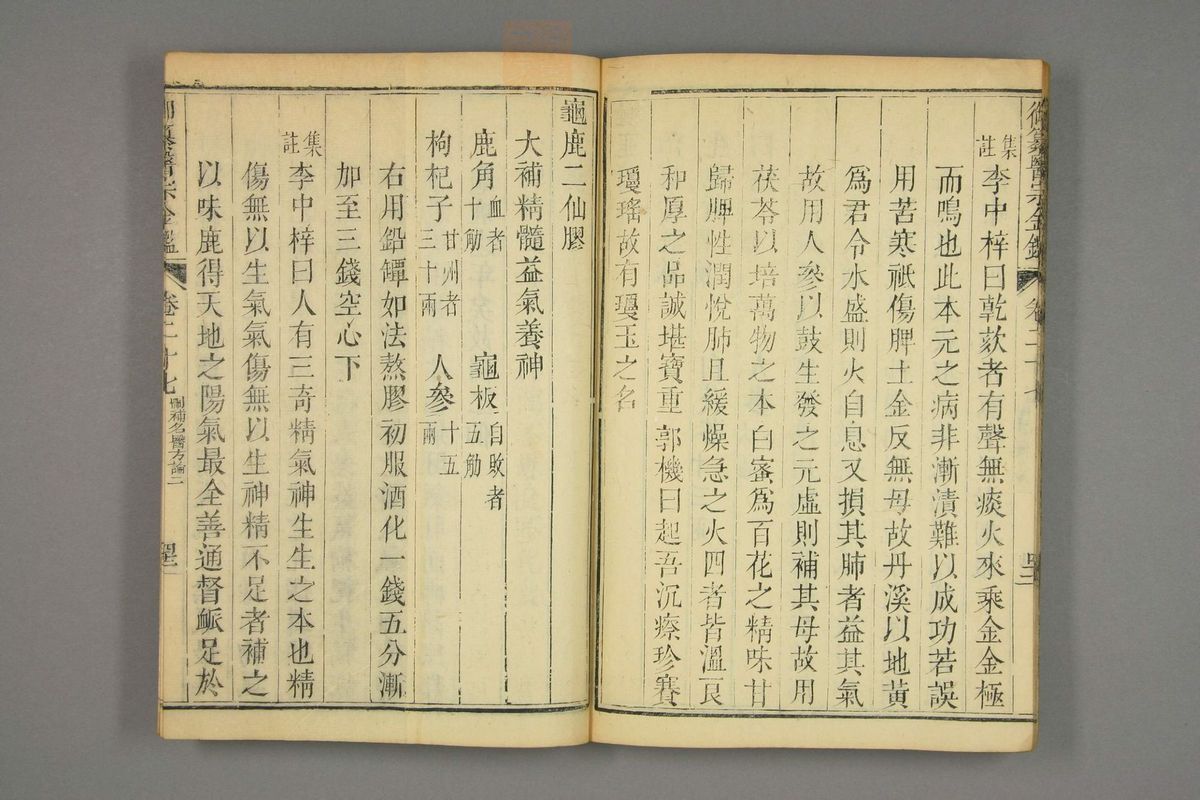 御纂醫宗金鑑 卷二十七 四二
集註李中梓曰乾欬者有聲無痰火來乘金金極
而鳴也此本元之病非漸漬難以成功若誤
用苦寒祇傷脾土金反無母故丹溪以地黃
爲君令水盛則火自息又損其肺者益其氣
故用人參以鼓生發之元虛則補其母故用
茯苓以培萬物之本白蜜爲百花之精味甘
歸脾性潤悅肺且緩燥急之火四者皆溫良
和厚之品誠堪寶重郭機曰起吾沉瘵珍賽
瓊瑤故有瓊玉之名
龜鹿二仙膠
大補精髓益氣養神
鹿角血者十觔 龜板自敗者五觔
枸杞子甘州者三十兩 人參十五兩
右用鉛罈如法熬膠初服酒化一錢五分漸
加至三錢空心下
集註李中梓曰人有三奇精氣神生生之本也精
傷無以生氣氣傷無以生神精不足者補之
以味鹿得天地之陽氣最全善通督脈足於
御纂醫宗金鑑 卷二十七 刪補名醫方論二